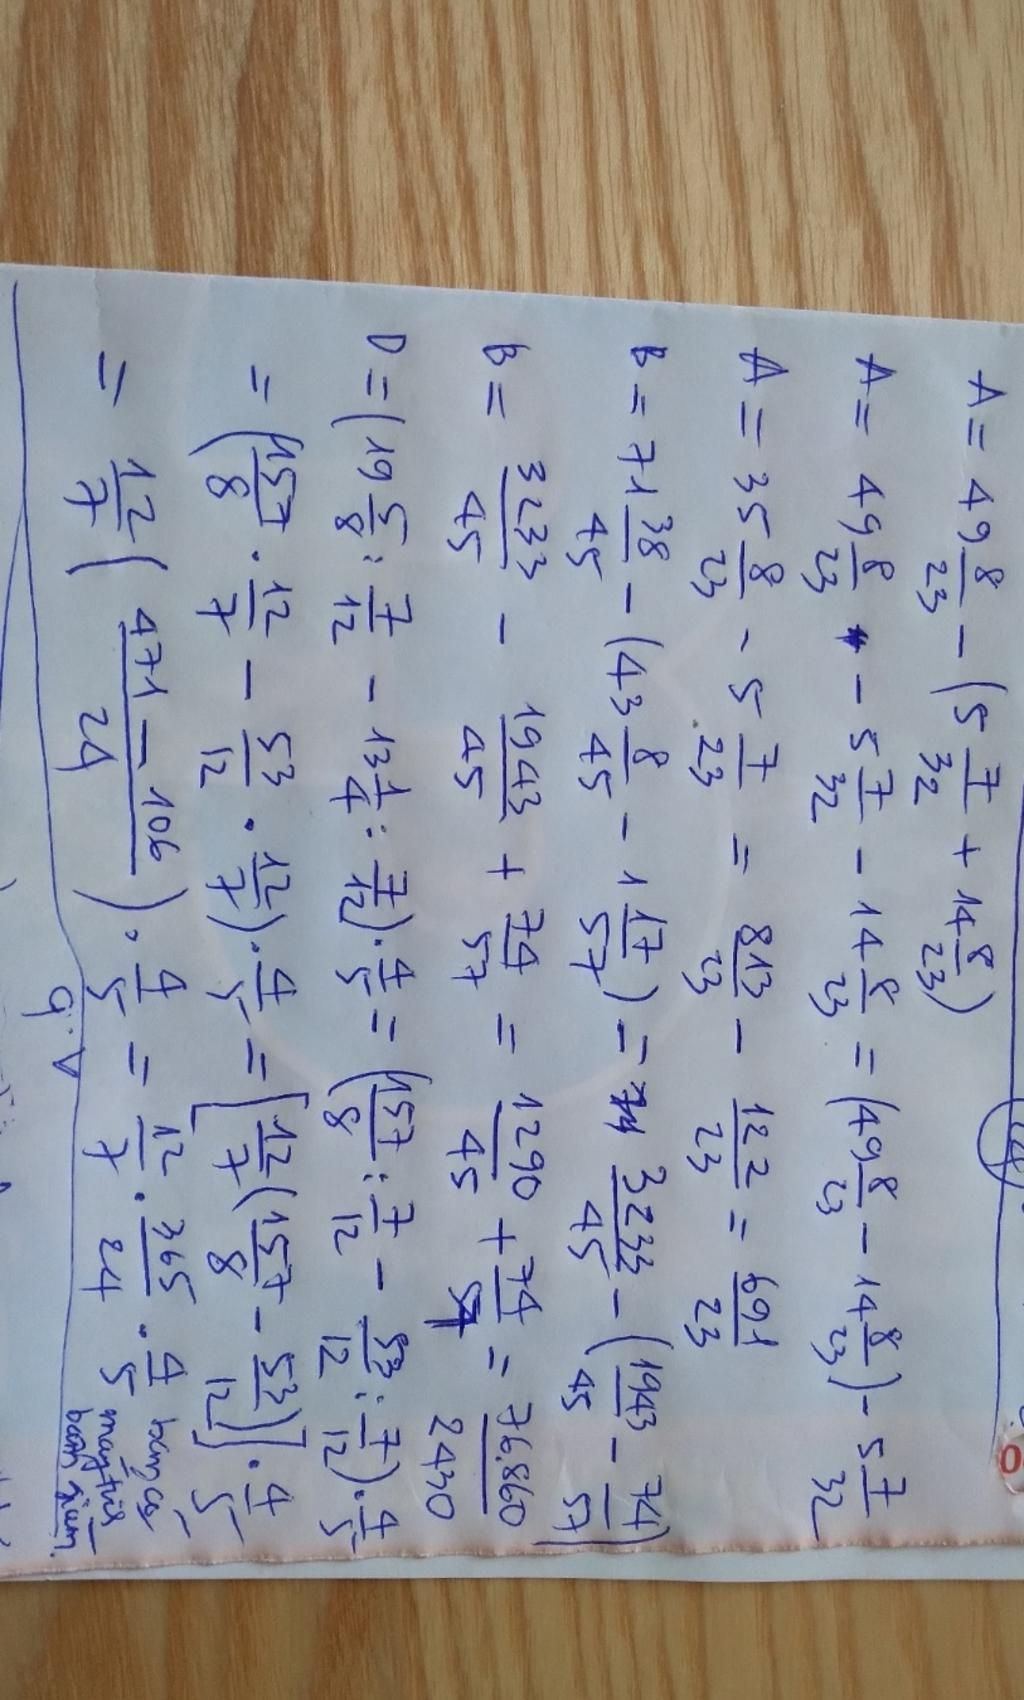 A = 49 8/23 - (5 7/32 + 14 8/23)
A = 49 8/23 - 5 7/32 - 14 8/23 = (49 8/23 - 14 8/23) - 5 7/32
A = 35 8/23 - 5 7/23 = 813/23 - 122/23 = 691/23
B = 71 38/45 - (43 8/45 - 1 17/57) = 3233/45 - (1943/45 - 74/57)
B = 3233/45 - 1943/45 + 74/57 = 1290/45 + 74/57 = 76.860/2430
D = (19 5/8 : 7/12 - 13 1/4 : 7/12) . 4/5 = (157/8 : 7/12 - 53/12 : 7/12) . 4/5
= (157/8 . 12/7 - 53/12 . 12/7) . 4/5 = [12/7 (157/8 - 53/12)] . 4/5
= 12/7 (471 - 106/24) . 4/5 = 12/7 . 365/24 . 4/5
máy tính
bấm giùm.